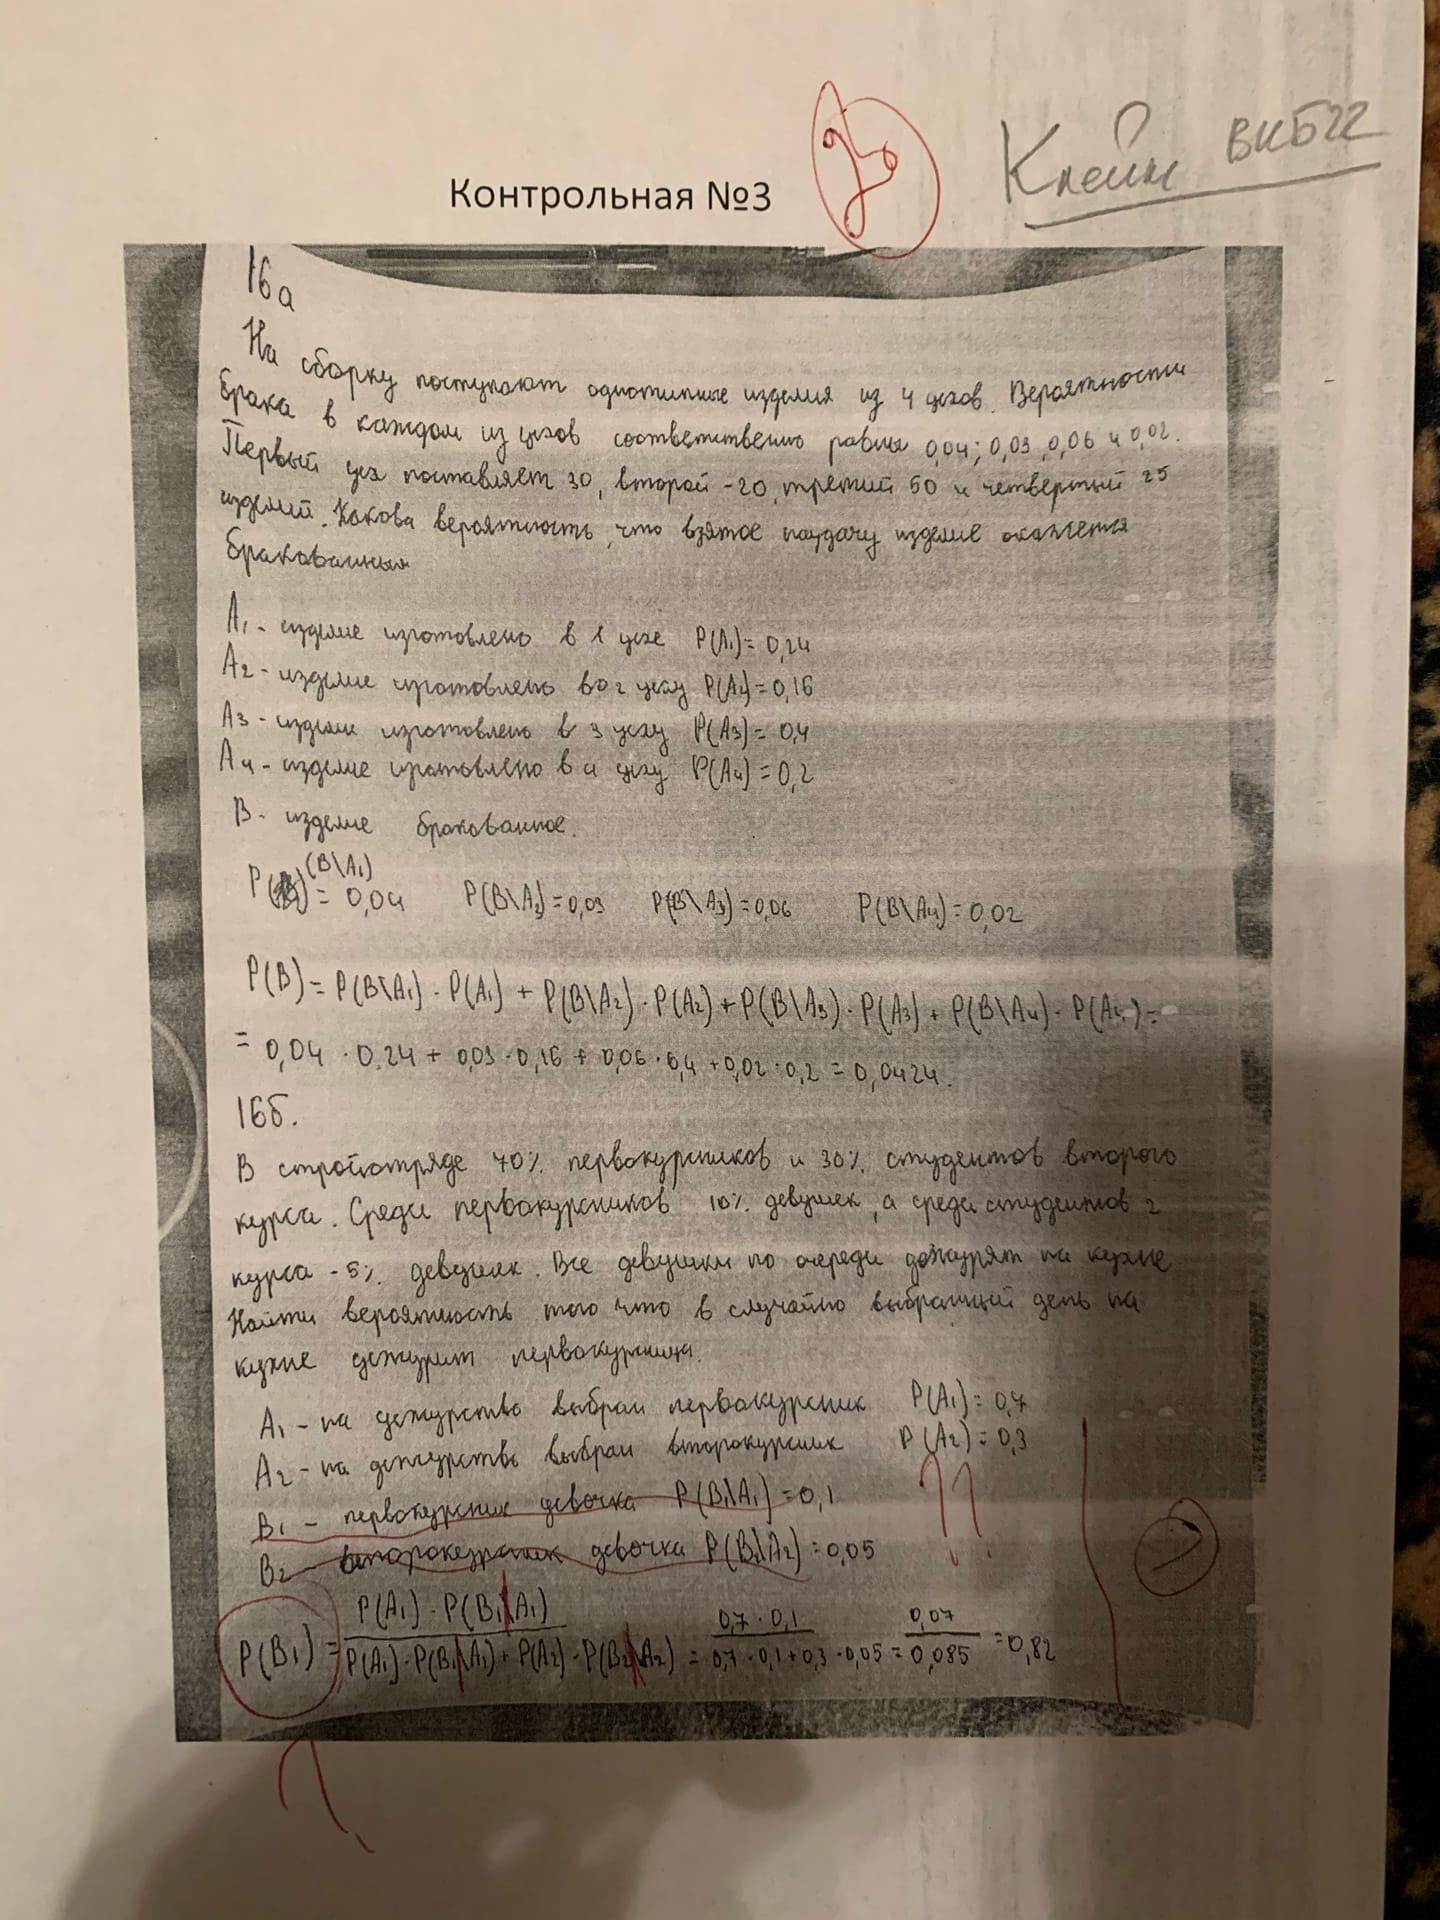 Клейн ВКБ22
Контрольная №3
16а
На сборку поступают однотипные изделия из 4 цехов. Вероятности
брака в каждом из цехов соответственно равны 0,04; 0,03, 0,06 и 0,02.
Первый цех поставляет 30, второй -20, третий 50 и четвертый 25
изделий. Какова вероятность, что взятое наудачу изделие окажется
бракованным
A1 - изделие изготовлено в 1 цехе P(A1)= 0,24
A2 - изделие изготовлено во 2 цеху P(A2)=0,16
A3 - изделие изготовлено в 3 цеху P(A3)= 0,4
A4 - изделие изготовлено в 4 цеху P(A4)=0,2
B - изделие бракованное.
P(B\A1) = 0,04 P(B\A2)=0,03 P(B\A3)=0,06 P(B\A4)=0,02
P(B) = P(B\A1) · P(A1) + P(B\A2) · P(A2) + P(B\A3) · P(A3) + P(B\A4) · P(A4) =
= 0,04 · 0,24 + 0,03 · 0,16 + 0,06 · 0,4 + 0,02 · 0,2 = 0,0424.
16б.
В стройотряде 70% первокурсников и 30% студентов второго
курса. Среди первокурсников 10% девушек, а среди студентов 2
курса - 5% девушек. Все девушки по очереди дежурят на кухне
Найти вероятность того что в случайно выбранный день на
кухне дежурит первокурсница.
A1 - на дежурство выбран первокурсник P(A1)= 0,7
A2 - на дежурство выбран второкурсник P(A2)=0,3
B1 - первокурсник девочка P(B1\A1) = 0,1
B2 - второкурсник девочка P(B2\A2) = 0,05
P(B1) = P(A1) · P(B1\A1) / P(A1) · P(B1\A1) + P(A2) · P(B2\A2) = 0,7 · 0,1 / 0,7 · 0,1 + 0,3 · 0,05 = 0,07 / 0,085 = 0,82